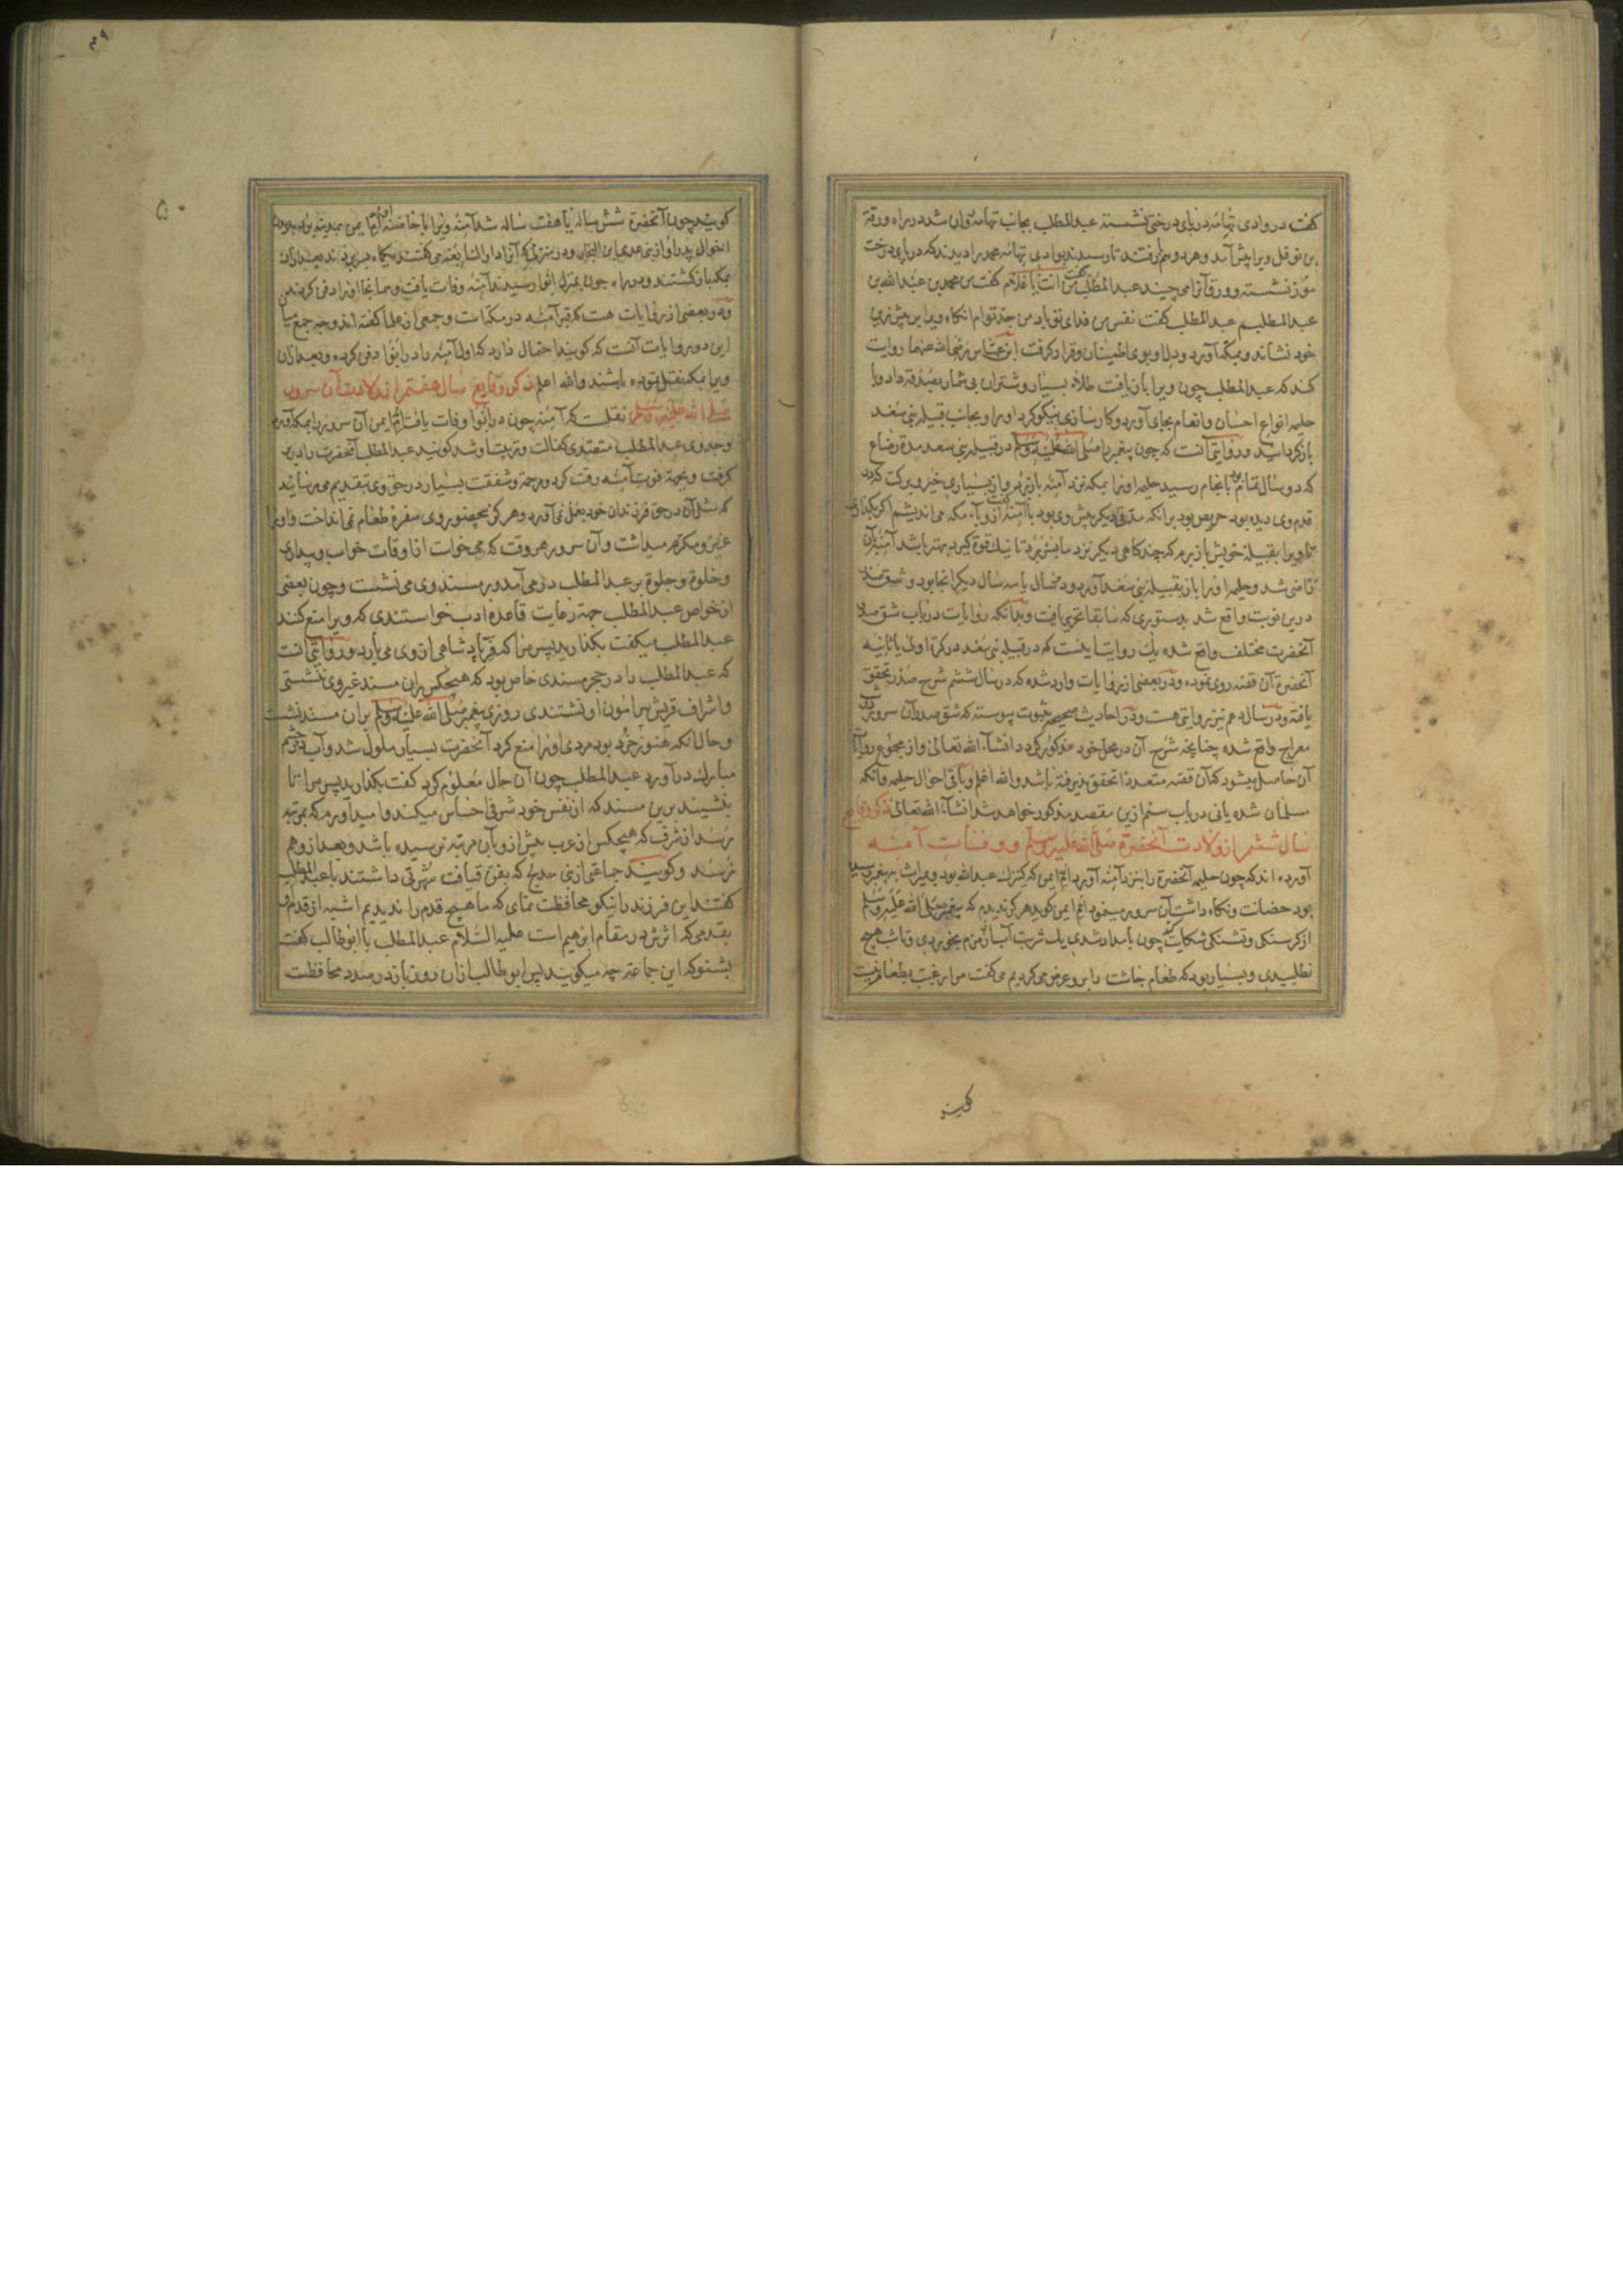 کفت در وادی تهامه در پای درختی نشسته عبدالمطلب بجانب تهامه روان شد در راه ورقة
بن نوفل ویرا پیش آمد و هر دو بهم رفتند تا رسیدند بوادی تهامه محمد را دیدند که در پای درخت
موز نشسته و ورق آنرا می چیند عبدالمطلب کفت من انت یا غلام کفت من محمد بن عبدالله بن
عبدالمطلبم عبدالمطلب کفت نفس من فدای تو باد من جد توام انکاه ویرا بر پیش زین
خود نشاند و بمکه آورد و دل او بوی اطمینان و قرار کرفت ابن عباس رضی الله عنهما روایت
کند که عبدالمطلب چون ویرا باز یافت طلاء بسیار و شتران بی شمار بصدقه داد و با
حلیمه انواع احسان و انعام بجای آورد و کارسازی نیکو کرد او را و بجانب قبیله بنی سعد
باز کردانید و روایتی آنست که چون پیغمبر را صلی الله علیه وسلم در قبیله بنی سعد مدة رضاع
که دو سال تمام بود بانجام رسید حلیمه او را بمکه نزد آمنه باز برد و از بسیاری خیر و برکت که در
قدم وی دیده بود حریص بود برانکه مدتی دیکر پیش وی بود با آمنه کفت از وباء مکه می اندیشم اکر بکذاری
تا ویرا بقبیله خویش باز برم که چند کاهی دیکر نزد ما بسر برد تا نیک قوة کیرد بهتر باشد آمنه بران
راضی شد و حلیمه او را باز بقبیله بنی سعد آورد و دو سال یا سه سال دیکر انجا بود و شق صدر
درین نوبت واقع شد بدستوری که سابقا تحریر یافت و بدانکه روایات در باب شق صدر
آنحضرت مختلف واقع شده یک روایت اینست که در قبیله بنی سعد در کرة اولی یا ثانیه
آنحضرة آن قصه روی نموده و در بعضی از روایات وارد شده که در سال ششم شرح صدر تحقق
یافته و در سال دهم نیز روایتی هست و در احادیث صحیحه بثبوت پیوسته که شق صدر آن سرور در شب
معراج واقع شده چنانچه شرح آن در محل خود مذکور کردد انشاء الله تعالی و از مجموع روایات
آن حاصل میشود که آن قصه متعددا تحقق پذیرفته باشد والله اعلم و باقی احوال حلیمه و آنکه
مسلمان شده یا نی در باب سیم ازین مقصد مذکور خواهد شد انشاء الله تعالی ذکر وقایع
سال ششم از ولادت آنحضرة صلی الله علیه وسلم و وفات آمنه
آورده اند که چون حلیمه آنحضرة را بنزد آمنه آورد ام ایمن که کنیزک عبدالله بود و بمیراث به پیغمبر رسیده
بود حضانت و نکاه داشت آن سرور مینمود ام ایمن کوید هرکز ندیدم که پیغمبر صلی الله علیه وسلم
از کرسنکی و تشنکی شکایت کند چون بامداد شدی یک شربت آب از زمزم بخوردی و تا شب هیچ
نطلبیدی و بسیار بود که طعام چاشت را برو عرض می کردیم می کفت مرا رغبت بطعام نیست
کویند
۴۹
۵۰
کویند چون آنحضرة شش ساله یا هفت ساله شد آمنه ویرا با حاضنه او ام ایمن بمدینه برد بدیدن
اخوال پدر او از بنی عدی ابن النجار و در منزلی که آنرا دار النابغه می کفتند یکماه بسر بردند بعد ازان
بمکه باز کشتند و در راه چون بمنزل ابوا رسیدند آمنه وفات یافت و همانجا او را دفن کردند
و در بعضی از روایات هست که قبر آمنه در مکه است و جمعی از علما کفته اند وجه جمع میان
این دو روایات آنست که کویند احتمال دارد که اولا آمنه را در ابوا دفن کرده و بعد ازان
ویرا بمکه نقل نموده باشند والله اعلم ذکر وقایع سال هفتم از ولادت آن سرور
صلی الله علیه وسلم نقلست که آمنه چون در ابوا وفات یافت ام ایمن آن سرور را بمکه آورد
و جد وی عبدالمطلب متصدی کفالت و تربیت او شد کویند عبدالمطلب آنحضرت را در بر
کرفت و بجهة فوت آمنه رقت کرد و مرحمة و شفقت بسیار در حق وی بتقدیم می رسانید
که مثل آن در حق فرزندان خود بعمل نمی آورد و هرکز بی حضور وی سفرهٔ طعام نمی انداخت و او را
عزیز و مکرم میداشت و آن سرور هر وقت که می خواست از اوقات خواب و بیداری
و خلوة و جلوة بر عبدالمطلب در می آمد و بر مسند وی می نشست و چون بعضی
از خواص عبدالمطلب جهة رعایت قاعده ادب خواستندی که ویرا منع کنند
عبدالمطلب میکفت بکذارید پسر مرا که فر پادشاهی از وی می بارد و روایتی آنست
که عبدالمطلب را در حجر مسندی خاص بود که هیچکس بران مسند غیر وی ننشستی
و اشراف قریش پیرامون او نشستندی روزی پیغمبر صلی الله علیه وسلم بران مسند نشست
و حال آنکه هنوز خرد بود مردی او را منع کرد آنحضرت بسیار ملول شد و آب در چشم
مبارک در آورد عبدالمطلب چون آن حال معلوم کرد کفت بکذارید پسر مرا تا
بنشیند برین مسند که از نفس خود شرفی احساس میکند و امید آورم که بمرتبه
برسد از شرف که هیچکس از عرب پیش از و بآن مرتبه نرسیده باشد و بعد از و هم
نرسد و کویند جماعتی از بنی مدلج که بفن قیافت شهرتی داشتند با عبدالمطلب
کفتند این فرزند را نیکو محافظت نمای که ما هیچ قدم را ندیدیم اشبه از قدم او
بقدمی که اثرش در مقام ابرهیم است علیه السلام عبدالمطلب با ابوطالب کفت
بشنو که این جماعة چه میکویند پس ابوطالب ازان روز باز در صدد محافظت